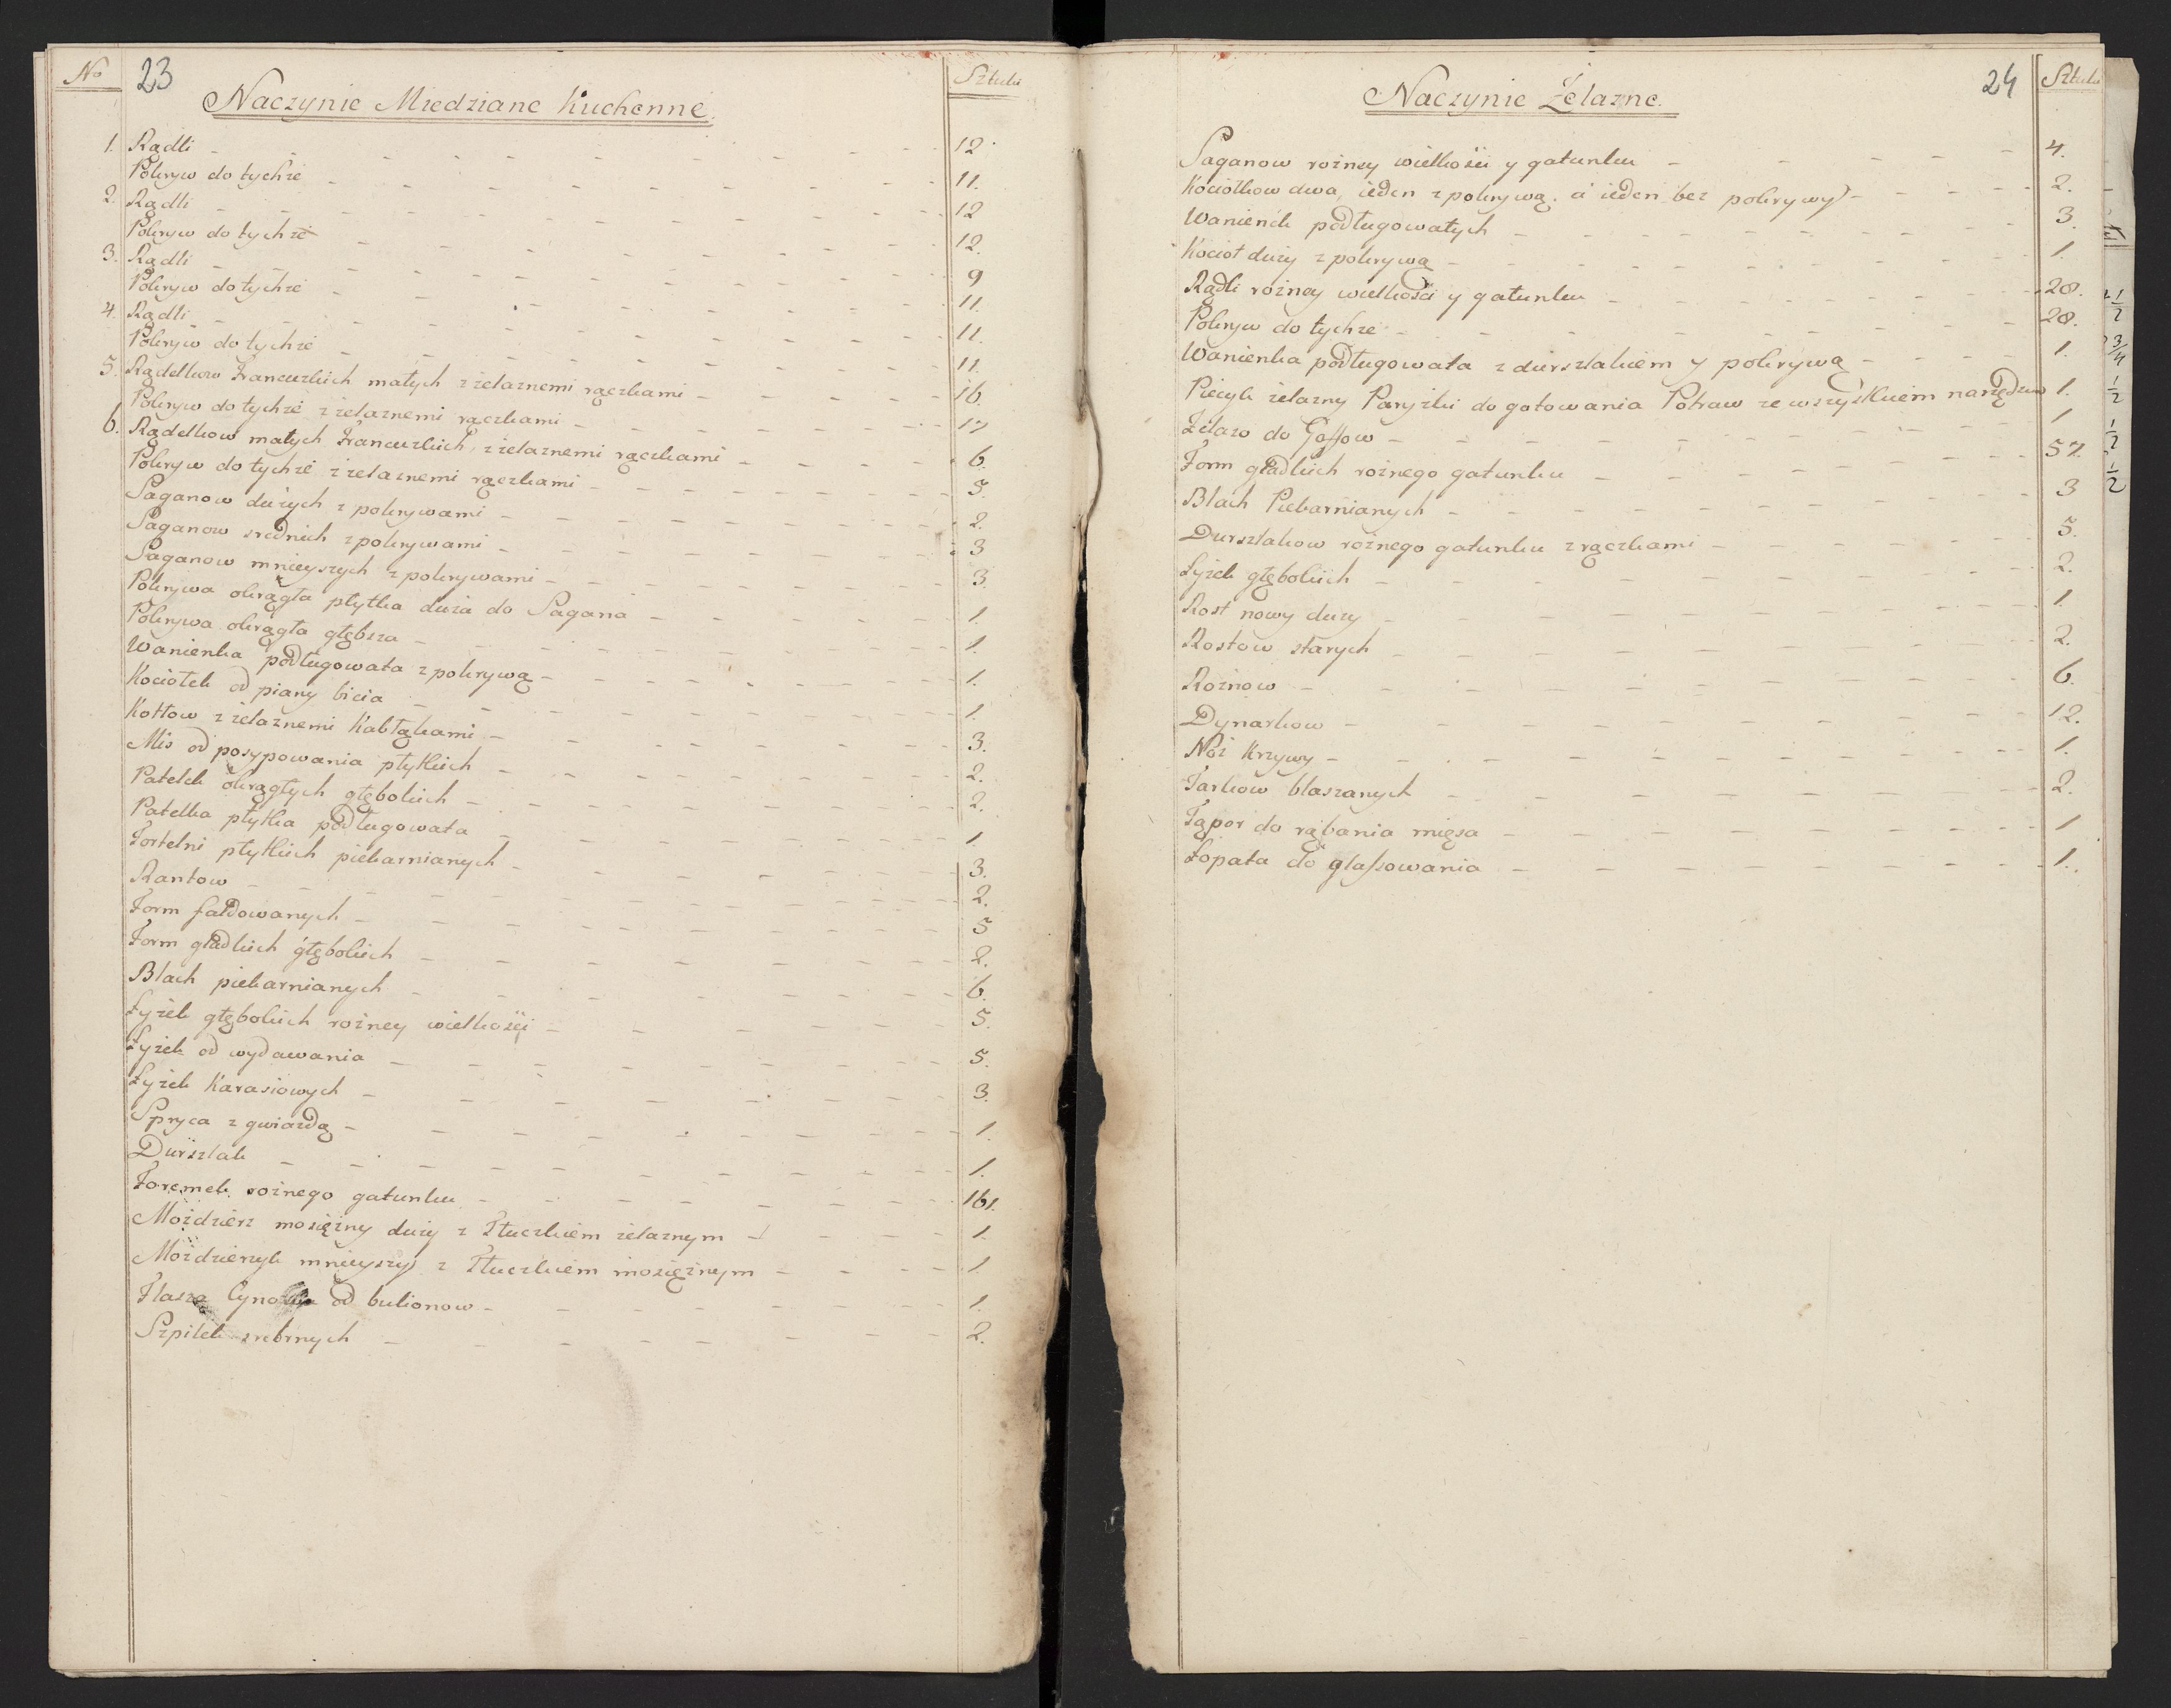 No 23 Sztuki
Naczynie Miedziane Kuchenne.
1. Rądli 12
Pokryw do tychże 11.
2. Rądli 12
Pokryw do tychże 12.
3. Rądli 9
Pokryw do tychże 11.
4. Rądli 11.
Pokryw do tychże 11.
5. Rądelkow Francuzkich małych z żelaznemi rączkami 16
Pokryw do tychże z żelaznemi rączkami 17
6. Rądelkow małych Francuzkich z żelaznemi rączkami 6.
Pokryw do tychże z żelaznemi rączkami 5.
Saganow dużych z pokrywami 2.
Saganow srednich z pokrywami 3
Saganow mnieyszych z pokrywami 3.
Pokrywa okrągła płytka duża do Sagana 1.
Pokrywa okrągła głębsza 1.
Wanienka podługowata z pokrywą 1.
Kociołek od piany bicia 1.
Kotłow z żelaznemi Kabłąkami 3.
Mis od posypowania płytkich 2.
Patelek okrągłych głębokich 2.
Patelka płytka podługowata 1.
Tortelni płytkich piekarnianych 3.
Rantow 2.
Form fałdowanych 5
Form gładkich głębokich 2.
Blach piekarnianych 6.
Łyżek głębokich rożney wielkości 5.
Łyżek od wydawania 5.
Łyżek Karasiowych 3.
Spryca z gwiazdą 1.
Durszlak 1.
Foremek rożnego gatunku 161.
Moździerz mosiężny duży z Tłuczkiem żelaznym 1.
Moździerzyk mnieyszy z Tłuczkiem mosiężnym 1.
Flasza od bulionow 1.
Szpilek srebrnych 2.
24 Sztuki
Naczynie Żelazne.
Saganow rożney wielkości y gatunku 4.
Kociołkow dwa, ieden z pokrywą, a ieden bez pokrywy 2.
Wanienek podługowatych 3.
Kocioł duży z pokrywą 1.
Rądli rożney wielkości y gatunku 28.
Pokryw do tychże 28.
Wanienka podługowata z durszlakiem y pokrywą 1.
Piecyk żelazny Paryzki do gotowania Potraw ze wszystkiem 1.
Żelazo do Gofrow 1
Form gładkich rożnego gatunku 57.
Blach Piekarnianych 3
Durszlakow rożnego gatunku z rączkami 5.
Łyżek głębokich 2.
Rost nowy duży 1.
Rostow starych 2.
Rożnow 6.
Dynarkow 12.
Noż Krzywy 1.
Tarkow blaszanych 2.
Tąpor do rąbania mięsa 1
Łopata do glassowania 1.
1/2
3/4
1/2
1/2
1/2